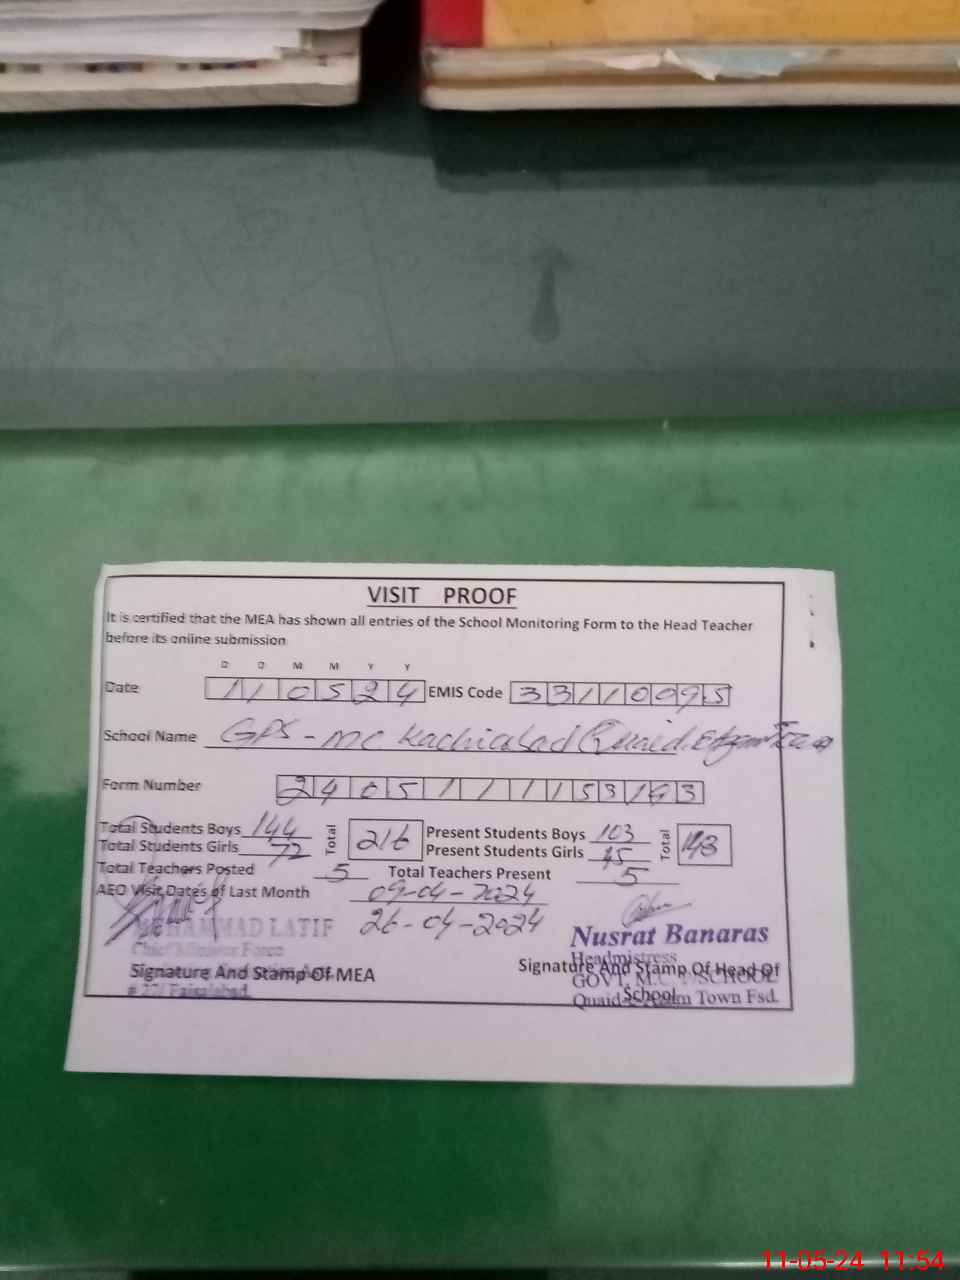 VISIT PROOF
It is certified that the MEA has shown all entries of the School Monitoring Form to the Head Teacher
before its online submission
D D M M Y Y
Date 1 1 0 5 2 4 EMIS Code 3 3 1 1 0 0 9 5
School Name GPS - MC Kachiabad Quaid.E Azam
Form Number 2 4 0 5 1 1 1 1 5 3 1 3
Total Students Boys 144 Total 216 Present Students Boys 103 Total
Total Students Girls 72 Present Students Girls
Total Teachers Posted 5 Total Teachers Present 5
AEO Visit Dates of Last Month 09-04-2024
26-04-2024
MUHAMMAD LATIF
Chief Minister Force
Signature And Stamp Of MEA
# 27/ Faisalabad.
Nusrat Banaras
Headmistress
Signature And Stamp Of Head Of
GOVT. M.C SCHOOL
School
Quaid-e-Azam Town Fsd.
11-05-24 11:54